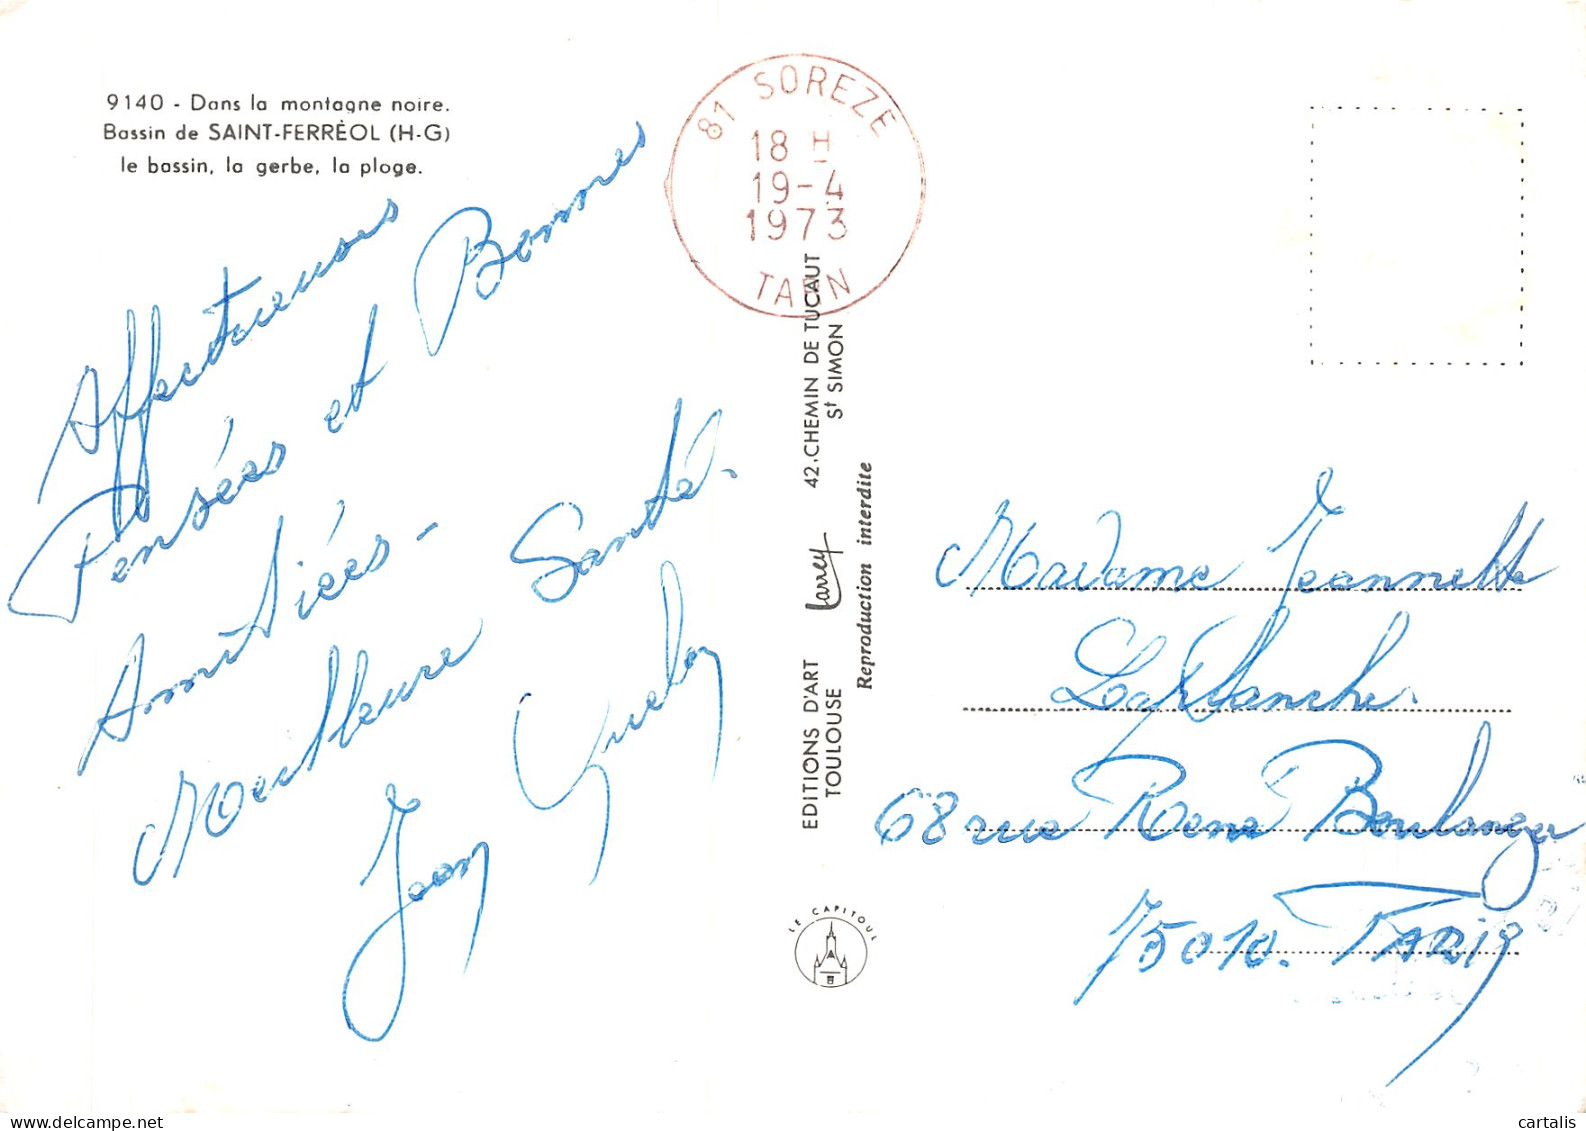 9140 - Dans la montagne noire.
Bassin de SAINT-FERRÈOL (H-G)
le bassin, la gerbe, la plage.
Affectueuses
Pensées et Bonnes
Amitiées -
Meilleure Santé.
Jean
81 SOREZE
18 H
19-4
1973
TARN
EDITIONS D'ART Larrey 42, CHEMIN DE TUCAUT
TOULOUSE St SIMON
Reproduction interdite
LE CAPITOUL
Madame Jeannette
Laplanche.
68 rue René Boulanger
75010. PARIS
delcampe.net
cartalis